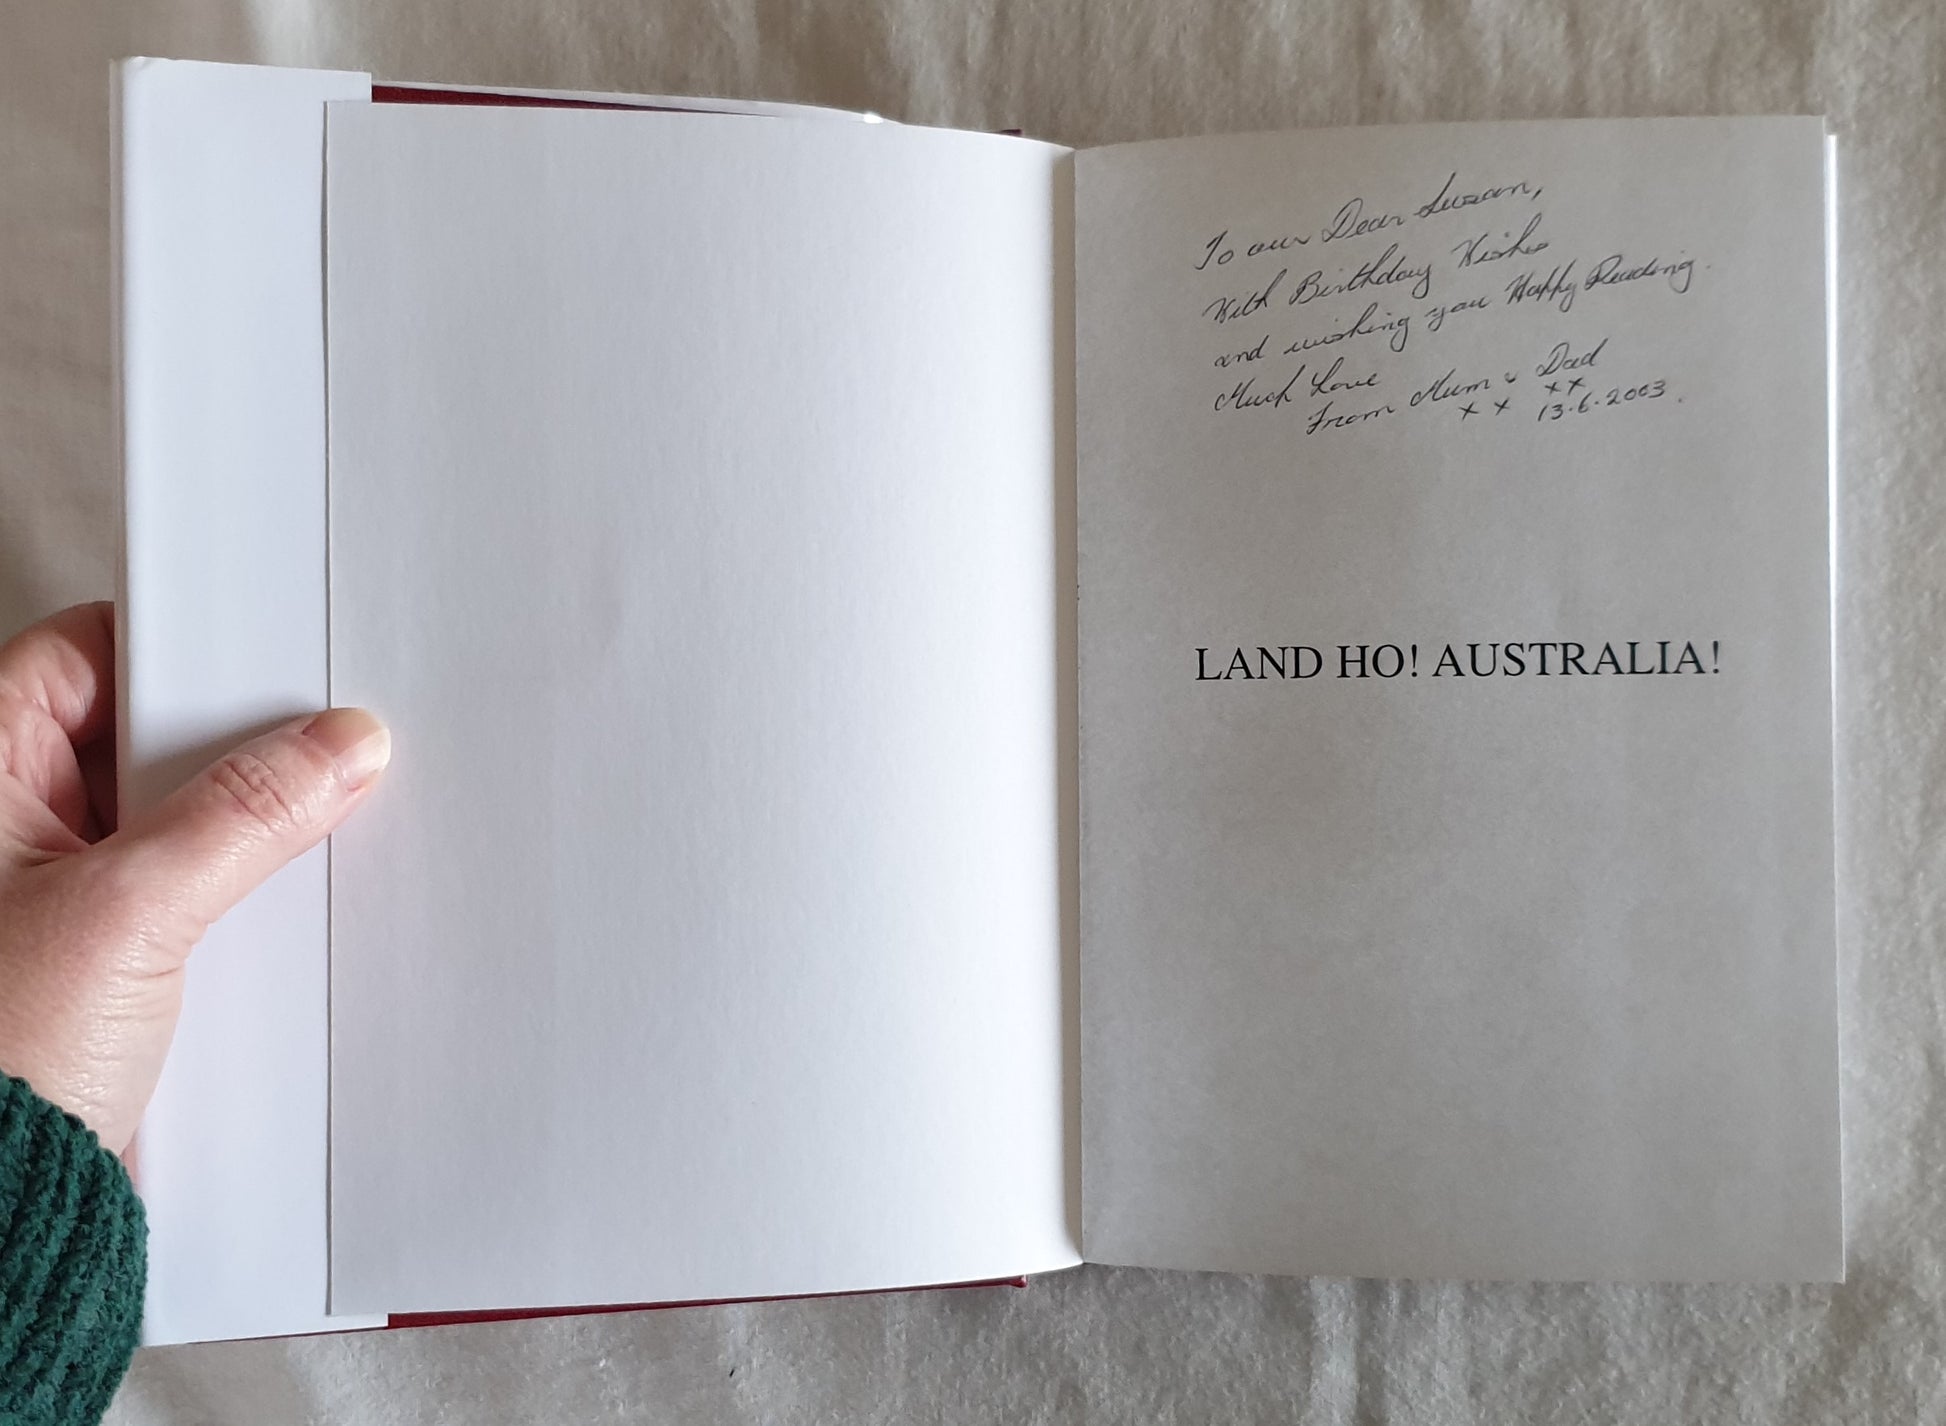 To our Dear Susan,
With Birthday Wishes
and wishing you Happy Reading.
Much Love
From Mum & Dad
x x x x
13.6.2003.
LAND HO! AUSTRALIA!